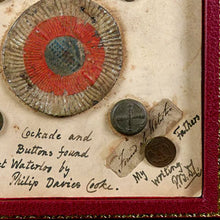 Cockade and
Buttons found
at Waterloo by
Philip Davies Cooke.
Found
My
Fathers
writing